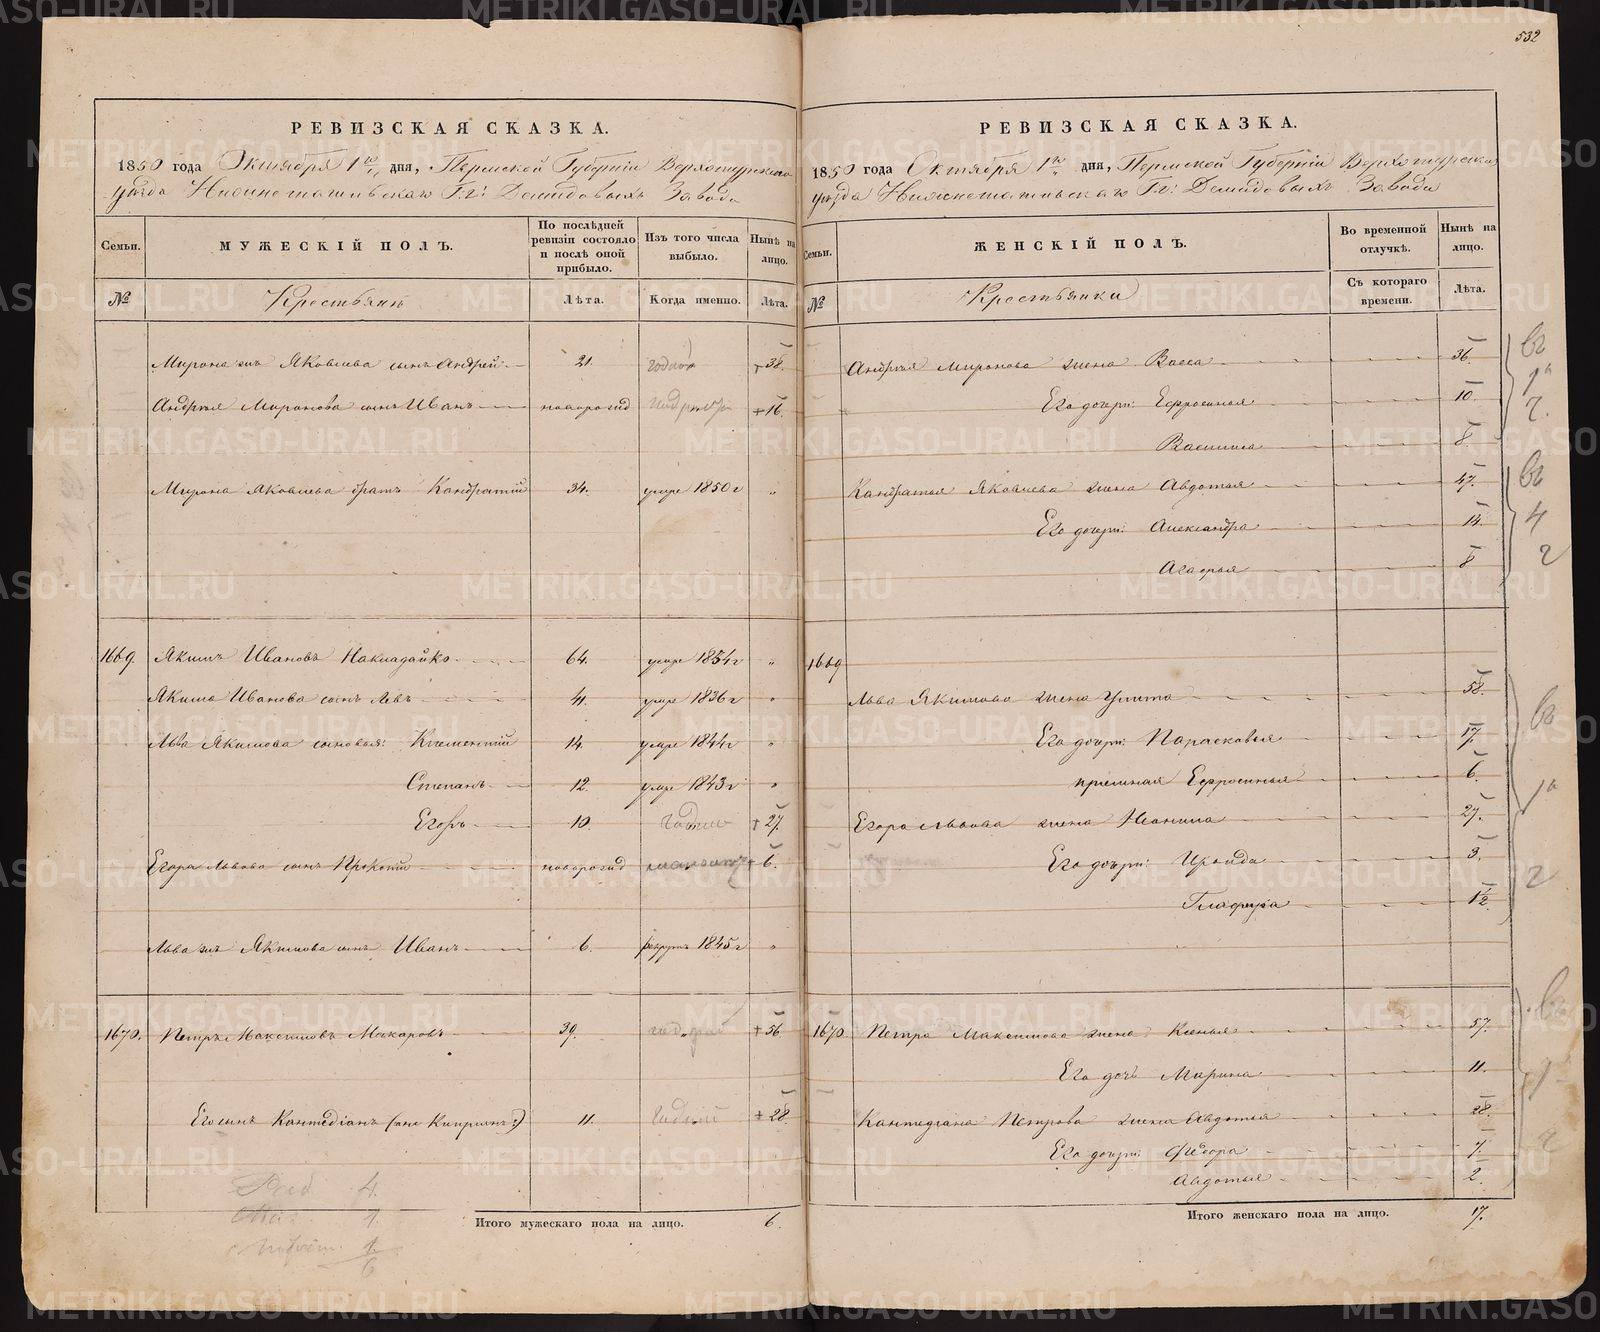 532
РЕВИЗСКАЯ СКАЗКА.
1850 года Октября 1го дня, Пермской Губернiи Верхотурскаго
уѣзда Нижнетагильскаго Гг: Демидовыхъ Завода
Семьи.
МУЖЕСКIЙ ПОЛЪ.
По послѣдней ревизiи состояло и послѣ оной прибыло.
Изъ того числа выбыло.
Нынѣ на лицо.
№ Крестьянъ Лѣта. Когда именно. Лѣта.
Мирона Яковлева сынъ Андрей 21. годной 38.
Андрея Миронова сынъ Иванъ новорожд 16.
Мирона Яковлева братъ Кандратiй 34. умре 1850 г "
1669. Якимъ Ивановъ Накладайко 64. умре 1854 г "
Якима Иванова сынъ Левъ 41. умре 1836 г "
Льва Якимова сыновья: Климентiй 14. умре 1844 г "
Степанъ 12. умре 1843 г "
Егоръ 10. 27.
Егора Львова сынъ Прокопiй новорожд 6.
Льва Якимова сынъ Иванъ 6. рекрутъ 1845 г "
1670. Петръ Максимовъ Макаровъ 39. 56.
Его сынъ (онъ же Кипрiянъ) 11. годный 28.
4.
1.
1.
6
Итого мужескаго пола на лицо. 6.
РЕВИЗСКАЯ СКАЗКА.
1850 года Октября 1го дня, Пермской Губернiи Верхотурскаго
уѣзда Нижнетагильскаго Гг: Демидовыхъ Завода
Семьи.
ЖЕНСКIЙ ПОЛЪ.
Во временной отлучкѣ.
Нынѣ на лицо.
№ Крестьянки Съ котораго времени. Лѣта.
Андрея Миронова жена Васса 36.
Его дочери: Ефросинья 10.
Василиса 8.
Кандратья Яковлева жена Авдотья 47.
Его дочери: Александра 14.
Агафья 8
1669
Льва Якимова жена Улита 58.
Его дочери: Парасковья 17.
прiемная Ефросинья 6.
Егора Львова жена 27.
Его дочери: Ираида 3.
Глафира 1/2.
1670. Петра Максимова жена Ксенья 57.
Его дочь Марина 11.
Петрова жена Авдотья 28.
Его дочери: Федора 7.
Авдотья 2.
Итого женскаго пола на лицо. 17.
METRIKI.GASO-URAL.RU